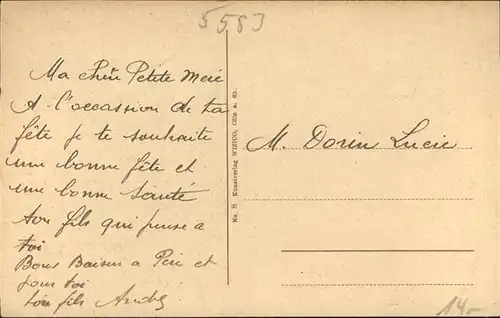 5583
Ma chère Petite Mere
A l'occassion de ta
fête je te souhaite
une bonne fête et
une bonne Santé
ton fils qui pense a
toi
Bons Baisers a Pere et
pour toi
ton fils André
M. Dorin Lucie
No. H Kunstverlag WYZUCO, Cöln a. Rh.
14-